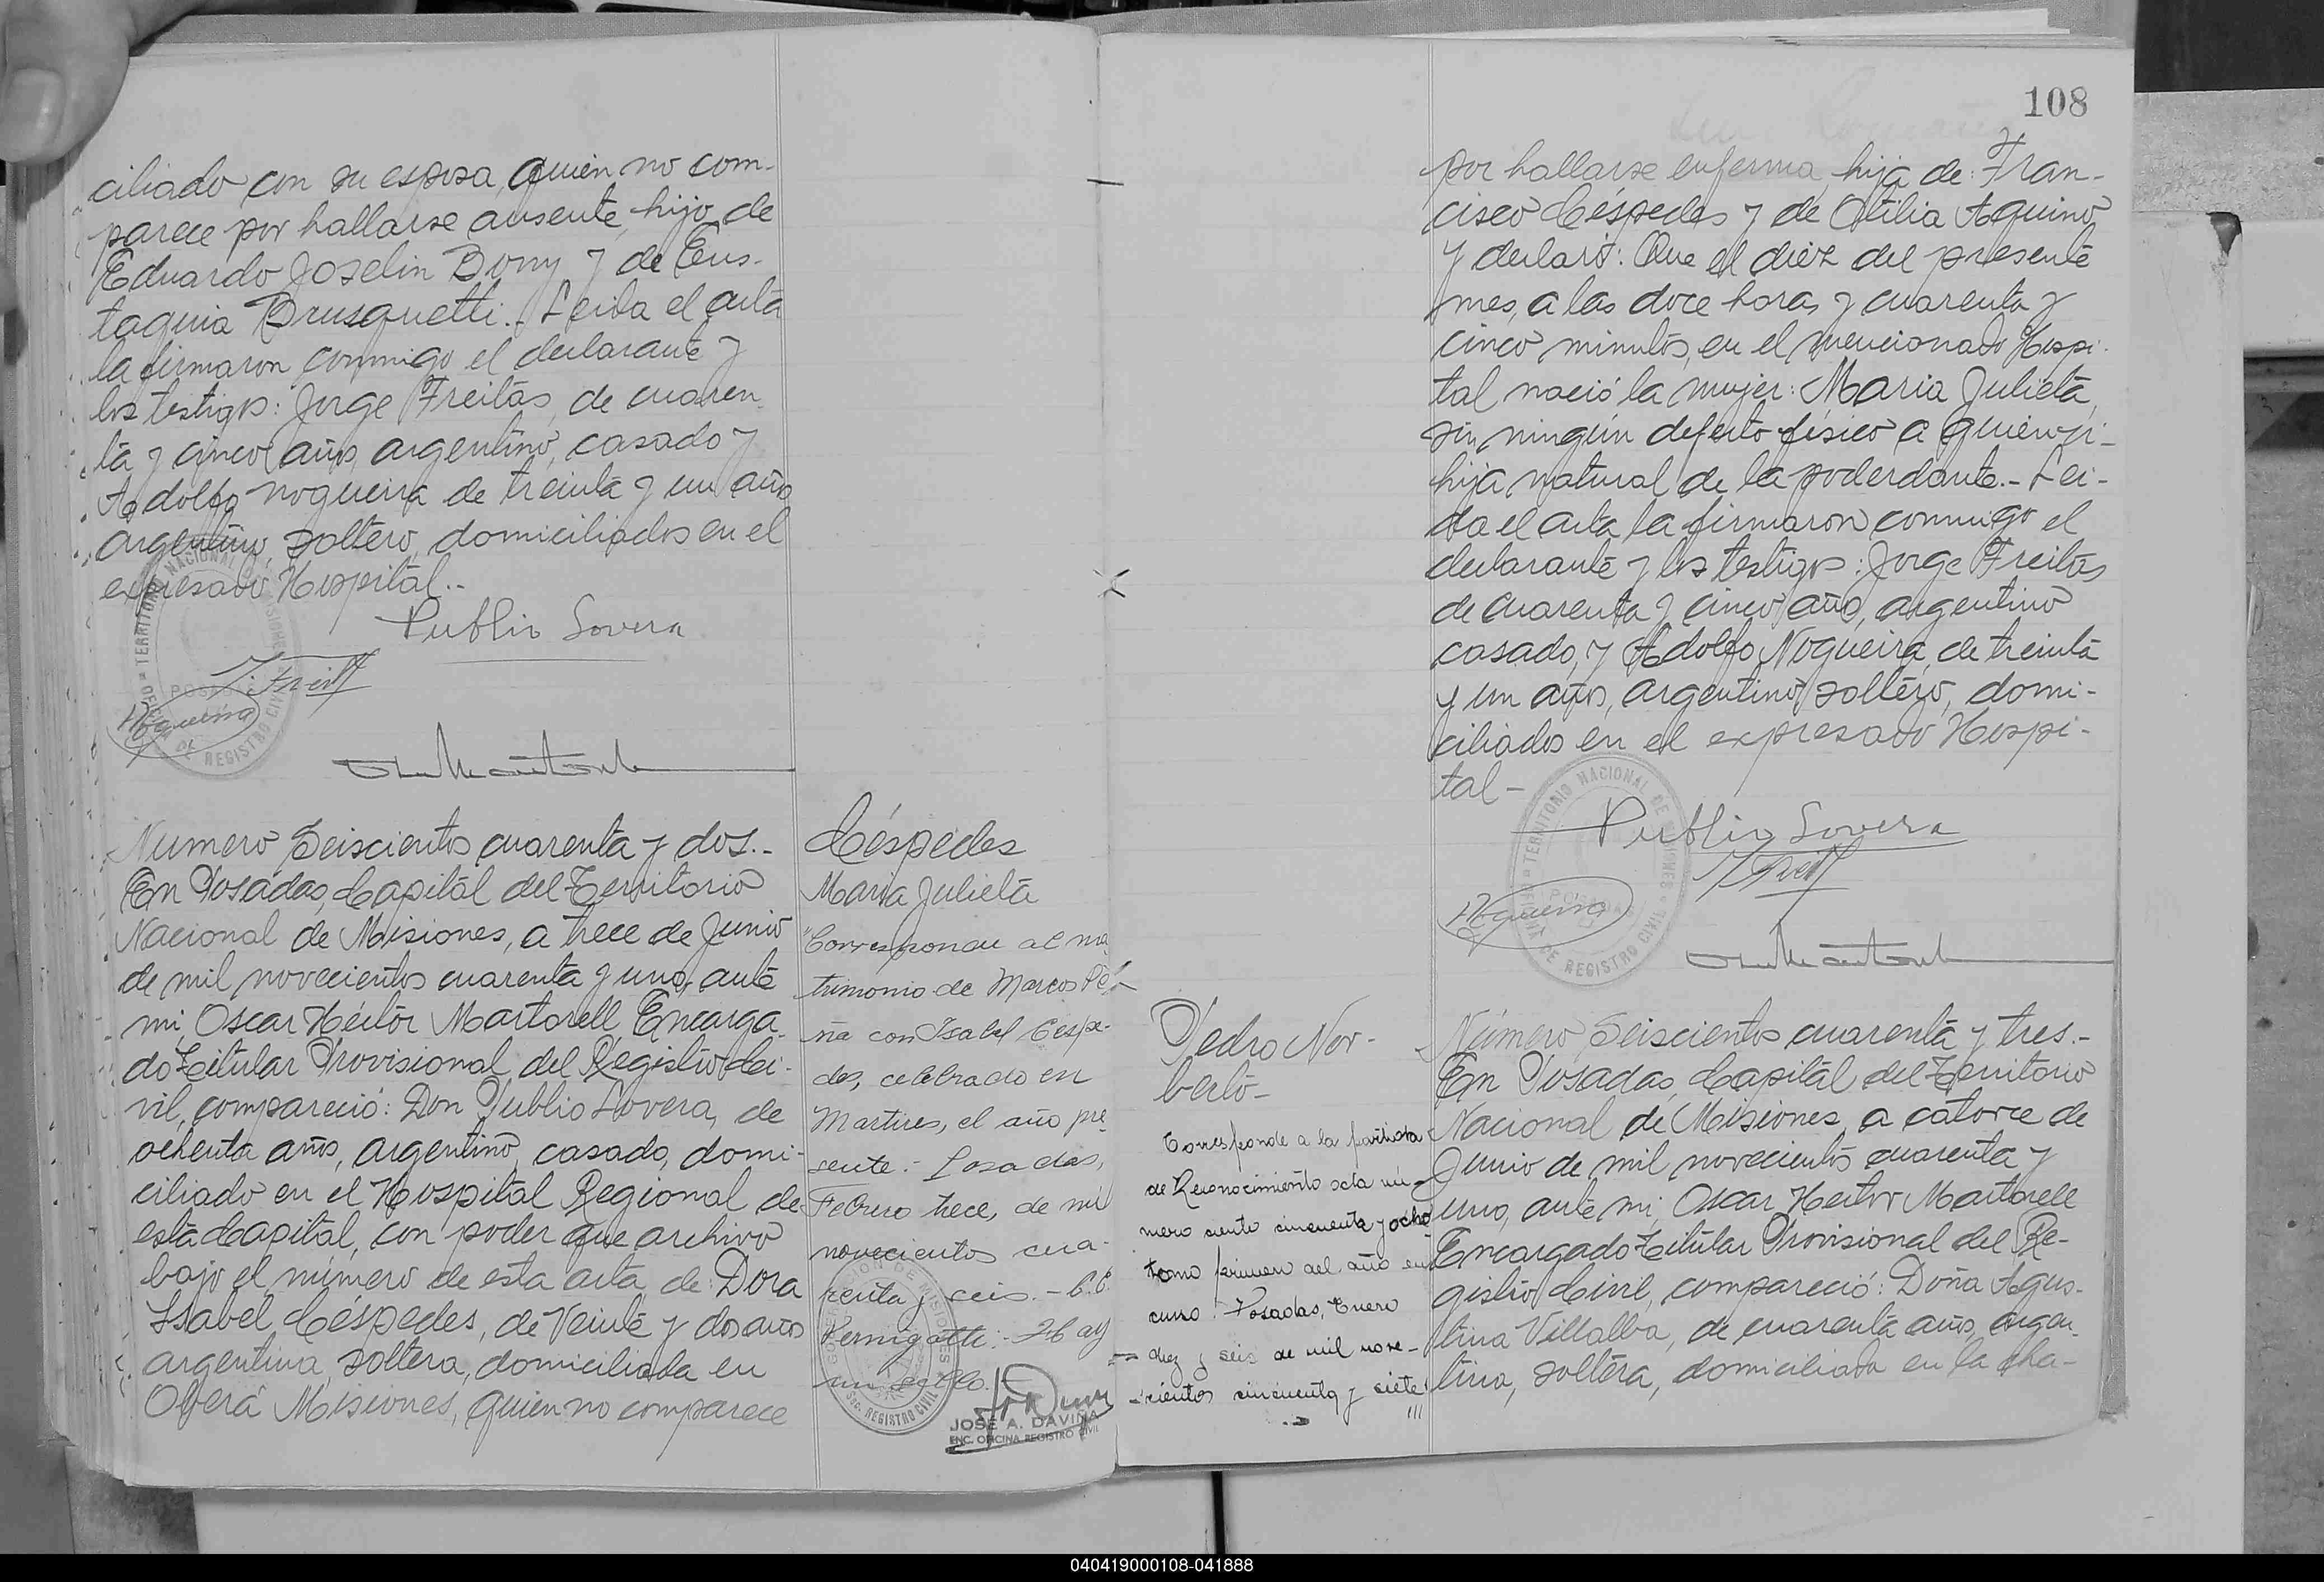 ciliado con su esposa, quien no com-
parece por hallarse ausente, hijo de
Eduardo Joselin Bony y de Eus-
taquia Brusquetti.- Leida el acta
la firmaron conmigo el declarante y
los testigos: Jorge Freitas, de cuaren-
ta y cinco años, argentino, casado y
Adolfo Nogueira de treinta y un año
argentino, soltero, domiciliados en el
expresado Hospital..-
Publio Lovera
Nogueira
Numero Seiscientos cuarenta y dos.-
En Posadas, Capital del Territorio
Nacional de Misiones, a trece de Junio
de mil novecientos cuarenta y uno, ante
mi, Oscar Héctor Martorell, Encarga-
do Titular Provisional del Registro Ci-
vil, compareció: Don Publio Lovera, de
ochenta años, argentino, casado, domi-
ciliado en el Hospital Regional de
esta Capital, con poder que archivo
bajo el número de esta acta, de: Dora
Isabel Céspedes, de veinte y dos años
argentina, soltera, domiciliada en
Oberá Misiones, quien no comparece
Céspedes
Maria Julieta
"Corresponde al ma
trimonio de Marcos Pe-
ña con Isabel Cespe-
des, celebrado en
Martires, el año pre-
sente.- Posadas,
Febrero trece, de mil
novecientos cua-
renta y seis.-
un sello.
JOSE A. DAVIÑA
ENC. OFICINA REGISTRO CIVIL
108
por hallarse enferma, hija de: Fran-
cisco Céspedes y de Otilia Aquino,
y declaró: Que el diez del presente
mes, a las doce horas y cuarenta y
cinco minutos, en el mencionado Hospi-
tal nació la mujer: Maria Julieta,
sin ningún defecto físico a quien vi-
hija natural de la poderdante.- Lei-
da el acta la firmaron conmigo el
declarante y los testigos: Jorge Freitas
de cuarenta y cinco años, argentino
casado, y Adolfo Nogueira, de treinta
y un años, argentino, soltero, domi-
ciliados en el expresado Hospi-
tal-
Publio Lovera
Nogueira
Pedro Nor-
berto-
Corresponde a la partida
de Reconocimiento acta nú-
mero ciento cincuenta y ocho
tomo primero del año en
curso. Posadas, Enero
diez y seis de mil nove-
cientos cincuenta y siete
Número Seiscientos cuarenta y tres.-
En Posadas, Capital del Territorio
Nacional de Misiones, a catorce de
Junio de mil novecientos cuarenta y
uno, ante mi, Oscar Hector Martorell
Encargado Titular Provisional del Re-
gistro Civil, compareció: Doña Agus-
tina Villalba, de cuarenta años, argen-
tina, soltera, domiciliada en la cha-
040419000108-041888